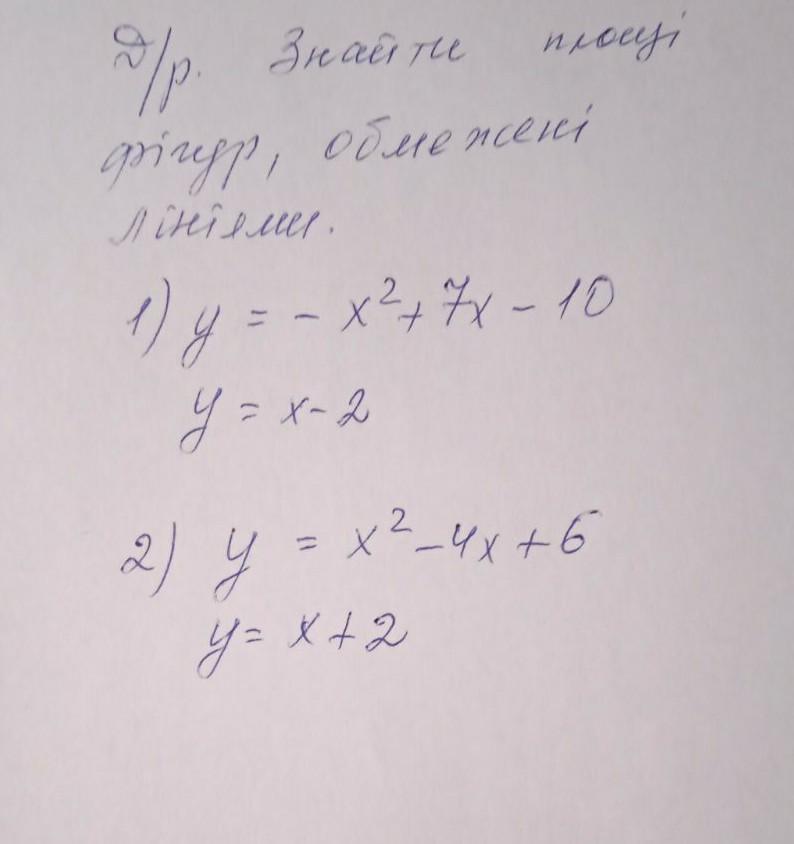 Д/р. Знайти площі
фігур, обмежені
лініями.
1) y = - x² + 7x - 10
y = x - 2
2) y = x² - 4x + 6
y = x + 2